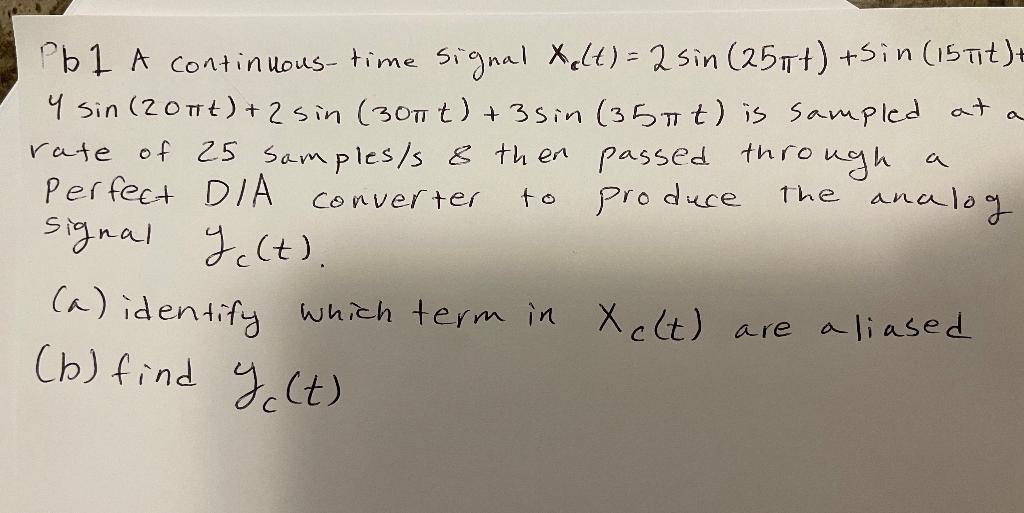 Pb1 A continuous-time signal Xc(t) = 2 sin(25πt) + sin(15πt)+
4 sin(20πt) + 2 sin(30πt) + 3 sin(35πt) is sampled at a
rate of 25 samples/s & then passed through a
Perfect D/A converter to produce the analog
signal yc(t).
(a) identify which term in Xc(t) are aliased
(b) find yc(t)